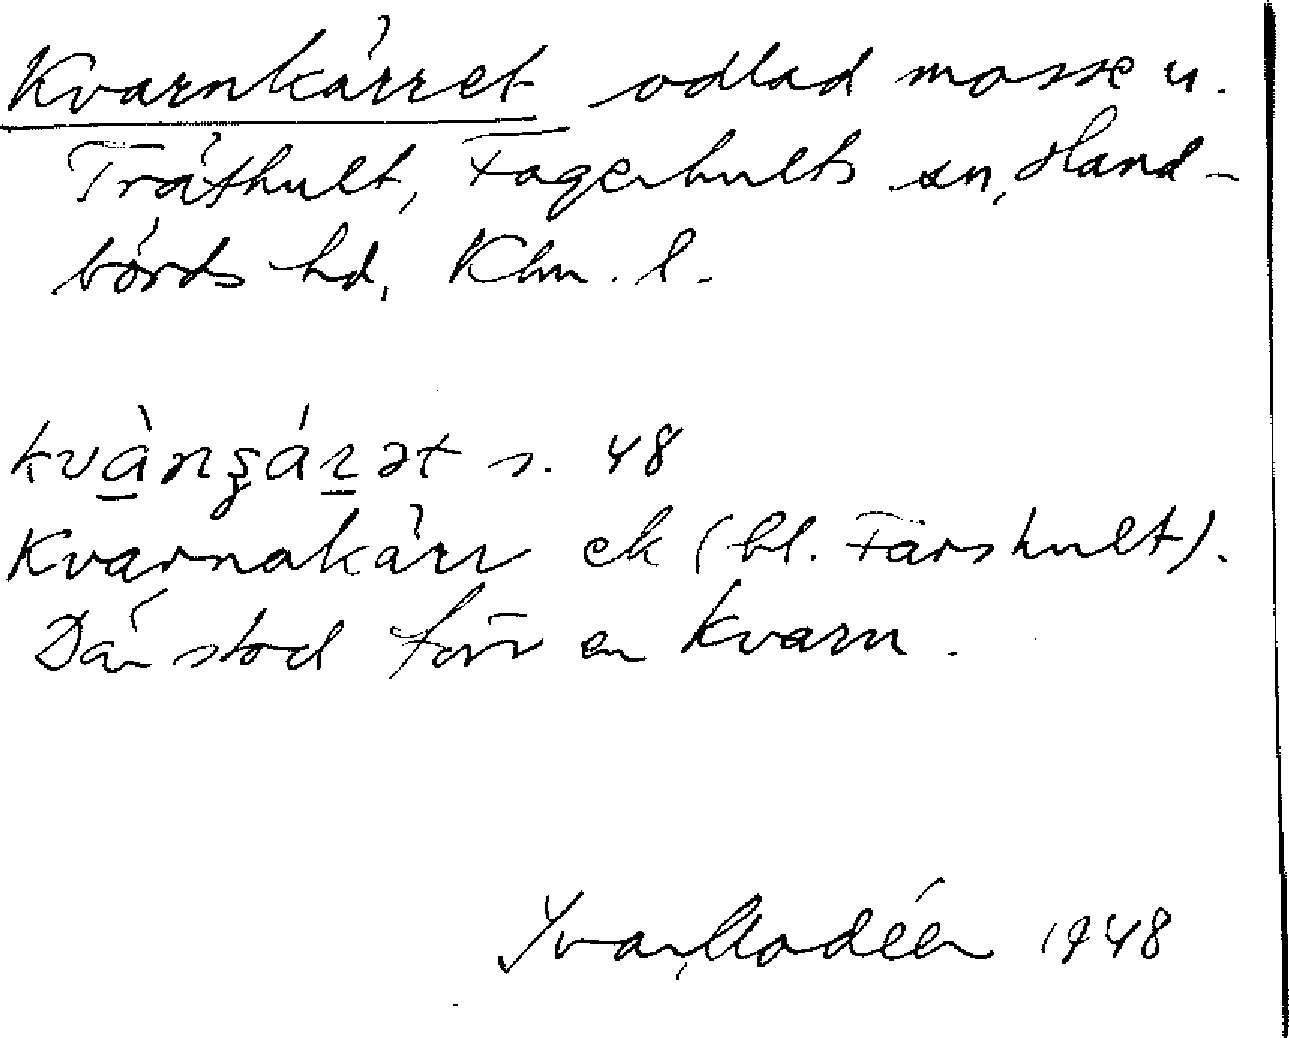 Kvarnkärret odlad mosse u.
Träthult, Fagerhults sn, Hand-
börds hd, Klm. l.
kvànʂáɽət s. 48
Kvarnakärr ek (bl. Farshult).
Där stod förr en kvarn.
Yvar Modéer 1948